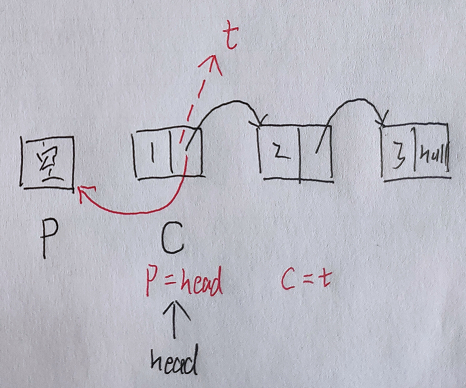 t
空 1 2 3 null
P C
P=head C=t
head